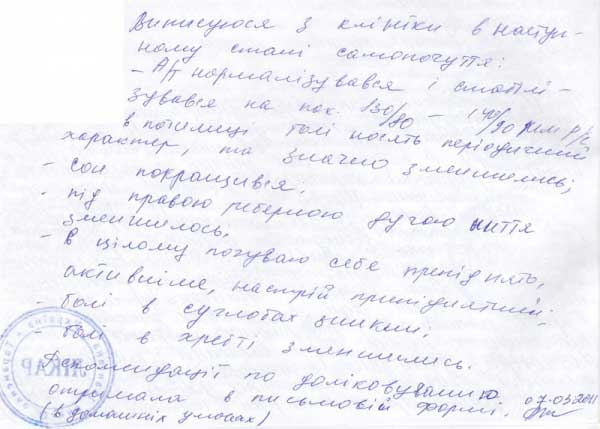 Виписуюся з клініки в наступ-
ному стані самопочуття:
- А/т нормалізувався і стабілі-
зувався на пок. 130/80 - 140/90 мм р/с
в потилиці болі носять періодичний
характер, та значно зменшились;
- сон покращився.
- під правою реберною дугою ниття
зменшилось.
- в цілому почуваю себе
активніше, настрій приподнятий;
- болі в суглобах зникли;
- болі в хребті зменшились.
Рекомендації по доліковуванню
отримала в письмовій формі. 07.03.2011
(в домашніх умовах)
ЛІКАР